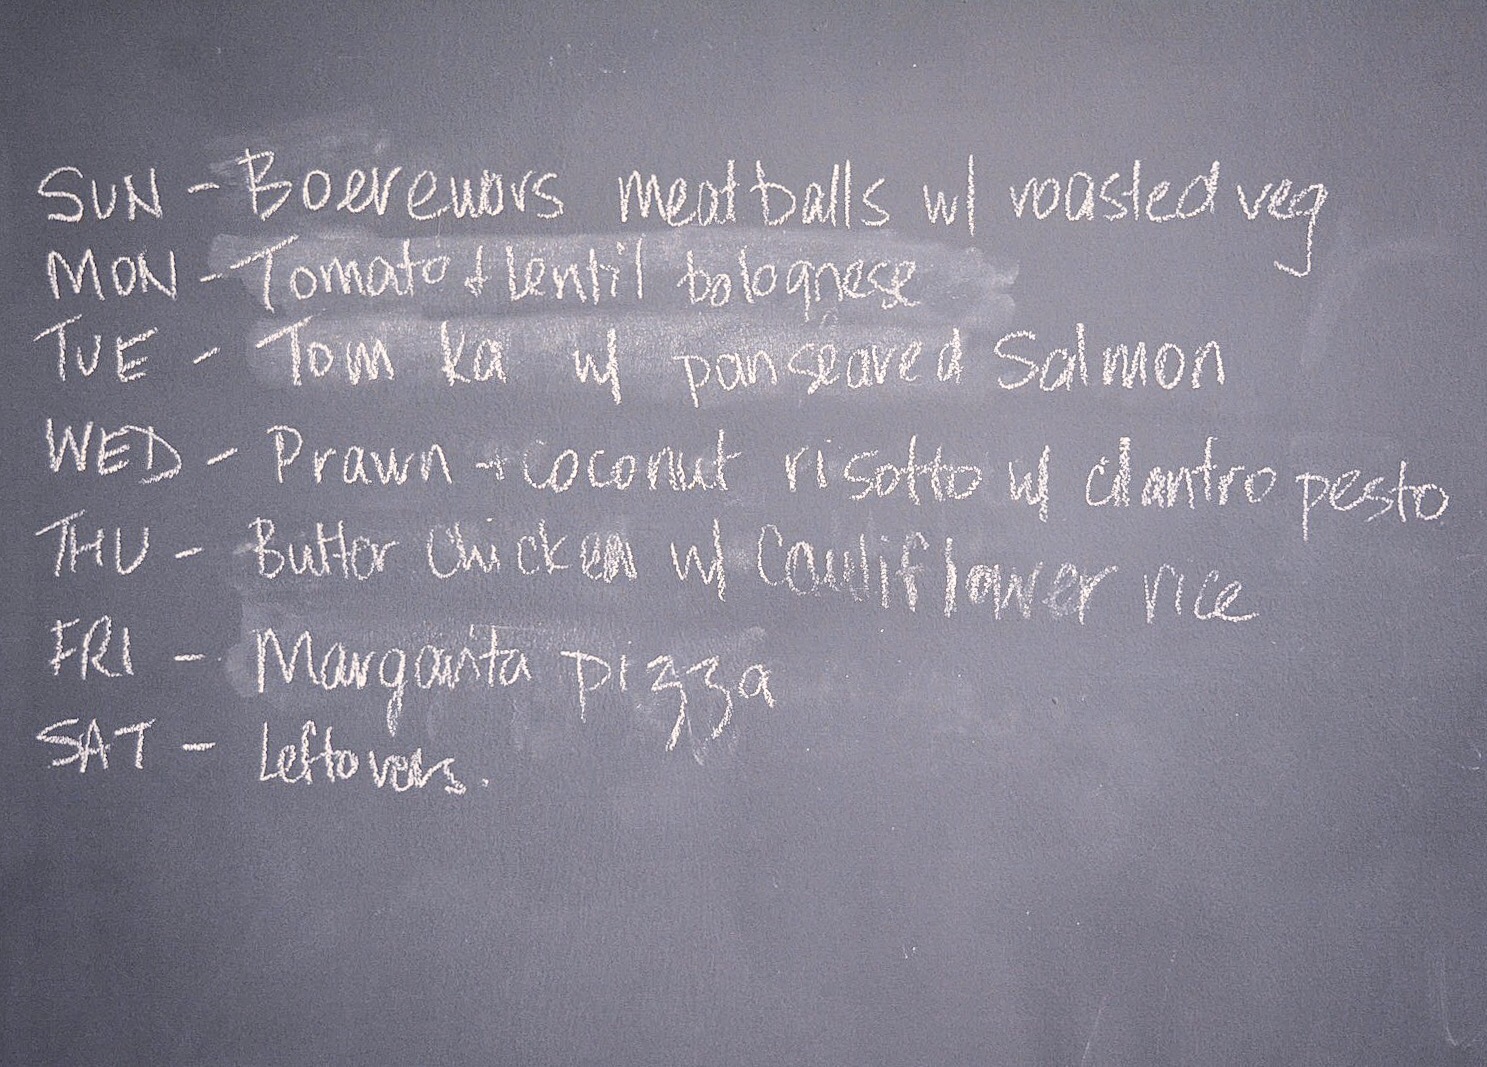 SUN - Boerewors meatballs w/ roasted veg
MON - Tomato + lentil bolognese
TUE - Tom ka w/ panseared Salmon
WED - Prawn + coconut risotto w/ cilantro pesto
THU - Butter chicken w/ Cauliflower rice
FRI - Margarita pizza
SAT - Leftovers.